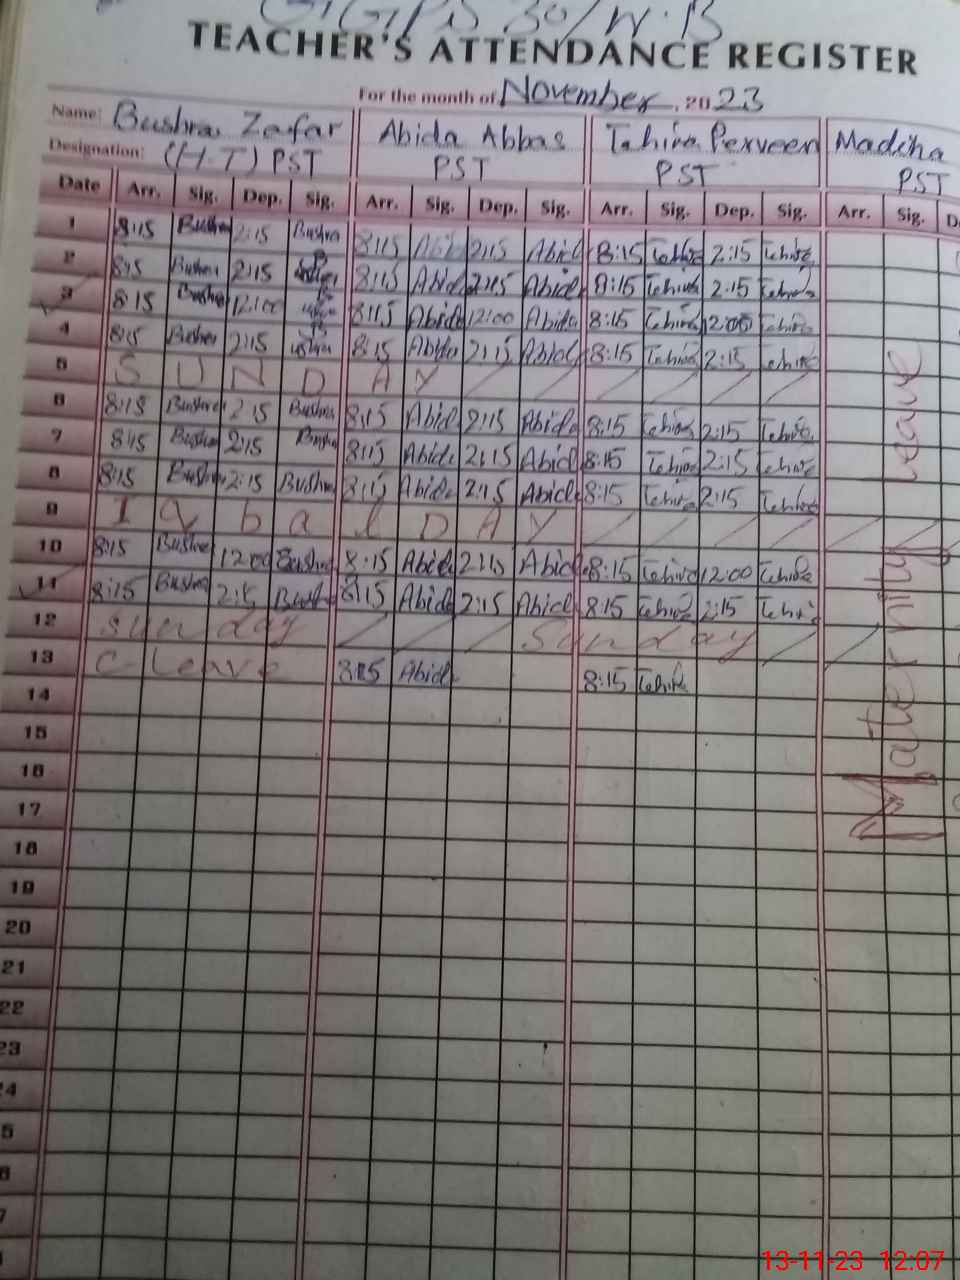 TEACHER'S ATTENDANCE REGISTER
For the month of November, 2023
Name: Bushra Zafar Abida Abbas Tahira Perveen Madiha
Designation: (H.T) PST PST PST PST
Date Arr. Sig. Dep. Sig. Arr. Sig. Dep. Sig. Arr. Sig. Dep. Sig. Arr. Sig.
1 8:15 Bushra 2:15 Bushra 8:15 Abid 2:15 Abid 8:15 Tehire 2:15 Tehire
2 8:15 Bushra 2:15 8:15 Abid 2:15 Abid 8:15 Tehire 2:15 Tehire
3 8:15 Bushra 12:00 8:15 Abida 12:00 Abida 8:15 Tehire 12:00 Tehire
4 8:15 Bushra 2:15 8:15 Abida 2:15 Abid 8:15 Tehire 2:15 Tehire
5 S U N D A Y
6 8:15 Bushra 2:15 Bushra 8:15 Abid 2:15 Abida 8:15 Tehire 2:15 Tehire
7 8:15 Bushra 2:15 Bushra 8:15 Abid 2:15 Abid 8:15 Tehire 2:15 Tehire
8 8:15 Bushra 2:15 Bushra 8:15 Abida 2:15 Abid 8:15 Tehire 2:15 Tehire
9 I q b a l D A Y
10 8:15 Bushra 12:00 Bushra 8:15 Abid 2:15 Abid 8:15 Tehire 12:00 Tehire
11 8:15 Bushra 2:15 Bushra 8:15 Abida 2:15 Abid 8:15 Tehire 2:15 Tehire
12 Sunday Sunday
13 C-Leave 8:15 Abid 8:15 Tehire
14
15
16
17
18
19
20
21
22
23
24
Maternity Leave
13-11-23 12:07